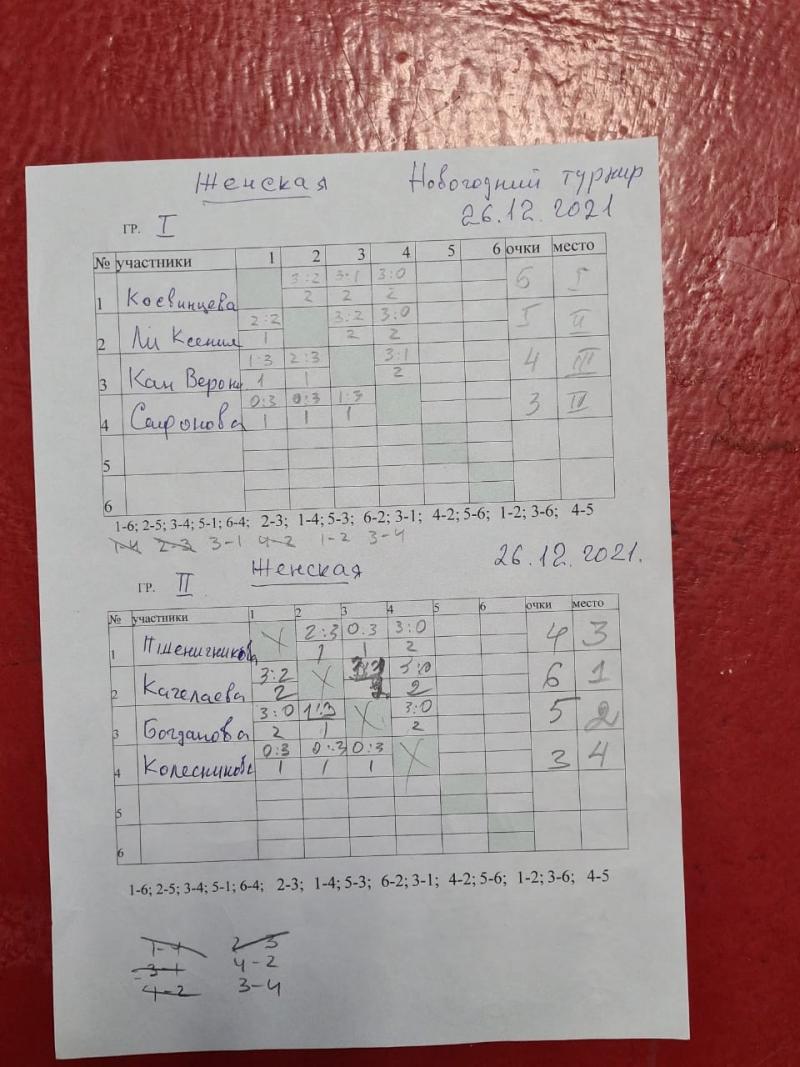 Женская Новогодний турнир
26.12.2021
ГР. I
№ участники 1 2 3 4 5 6 очки место
3:2 3:1 3:0
1 Косвинцева 2 2 2 6 I
2:2 3:2 3:0
2 Ли Ксения 1 2 2 5 II
1:3 2:3 3:1
3 Кан Верони 1 1 2 4 III
0:3 0:3 1:3
4 Сафонова 1 1 1 3
5
6
1-6; 2-5; 3-4; 5-1; 6-4; 2-3; 1-4; 5-3; 6-2; 3-1; 4-2; 5-6; 1-2; 3-6; 4-5
1-4 2-3 3-1 4-2 1-2 3-4
Женская 26.12.2021.
ГР. II
№ участники 1 2 3 4 5 6 очки место
X 2:3 0:3 3:0
1 Пшеничникова 1 1 2 4 3
3:2 X 3:0
2 Кагелаева 2 2 6 1
3:0 1:3 X 3:0
3 Богданова 2 1 2 5 2
0:3 0:3 0:3 X
4 Колесникова 1 1 1 3 4
5
6
1-6; 2-5; 3-4; 5-1; 6-4; 2-3; 1-4; 5-3; 6-2; 3-1; 4-2; 5-6; 1-2; 3-6; 4-5
1-4 2-3
3-1 4-2
4-2 3-4